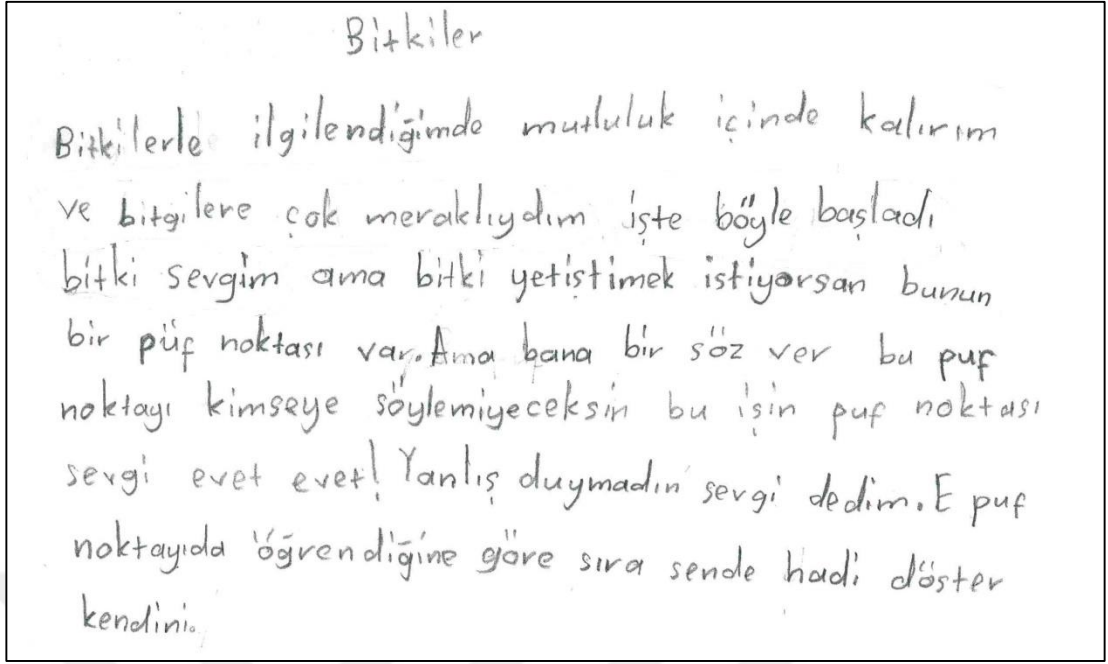 Bitkiler
Bitkilerle ilgilendiğimde mutluluk içinde kalırım
ve bitgilere çok meraklıydım işte böyle başladı
bitki sevgim ama bitki yetiştimek istiyorsan bunun
bir püf noktası var. Ama bana bir söz ver bu puf
noktayı kimseye söylemiyeceksin bu işin puf noktası
sevgi evet evet! Yanlış duymadın sevgi dedim. E puf
noktayıda öğrendiğine göre sıra sende hadi döster
kendini.